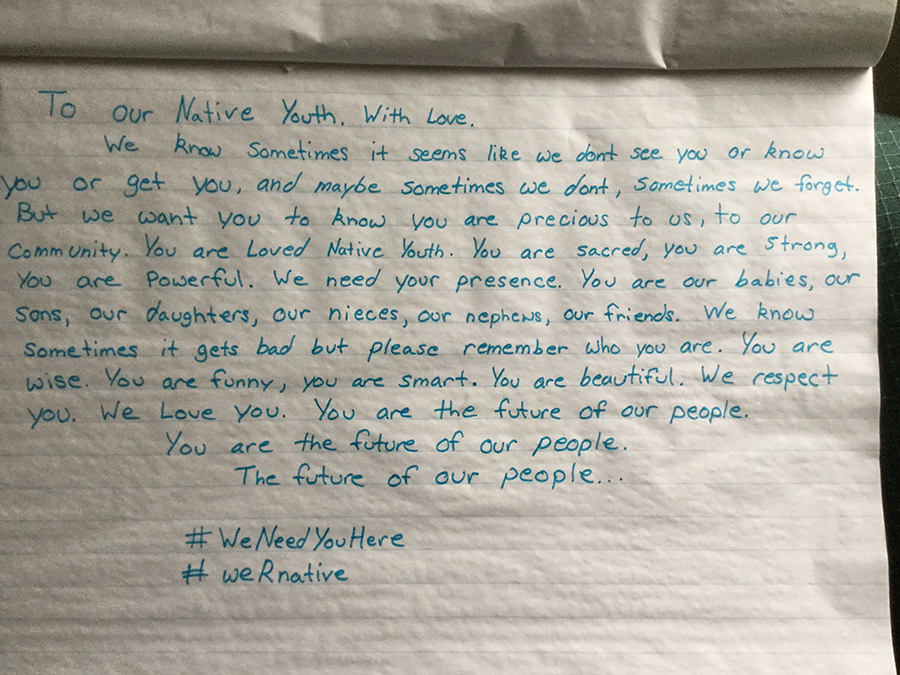 To our Native Youth. With Love.
We know sometimes it seems like we dont see you or know
you or get you, and maybe sometimes we dont, sometimes we forget.
But we want you to know you are precious to us, to our
Community. You are Loved Native Youth. You are sacred, you are strong,
You are Powerful. We need your presence. You are our babies, our
sons, our daughters, our nieces, our nephews, our friends. We know
sometimes it gets bad but please remember who you are. You are
wise. You are funny, you are smart. You are beautiful. We respect
you. We Love you. You are the future of our people.
You are the future of our people.
The future of our people...
#WeNeedYouHere
# weRnative